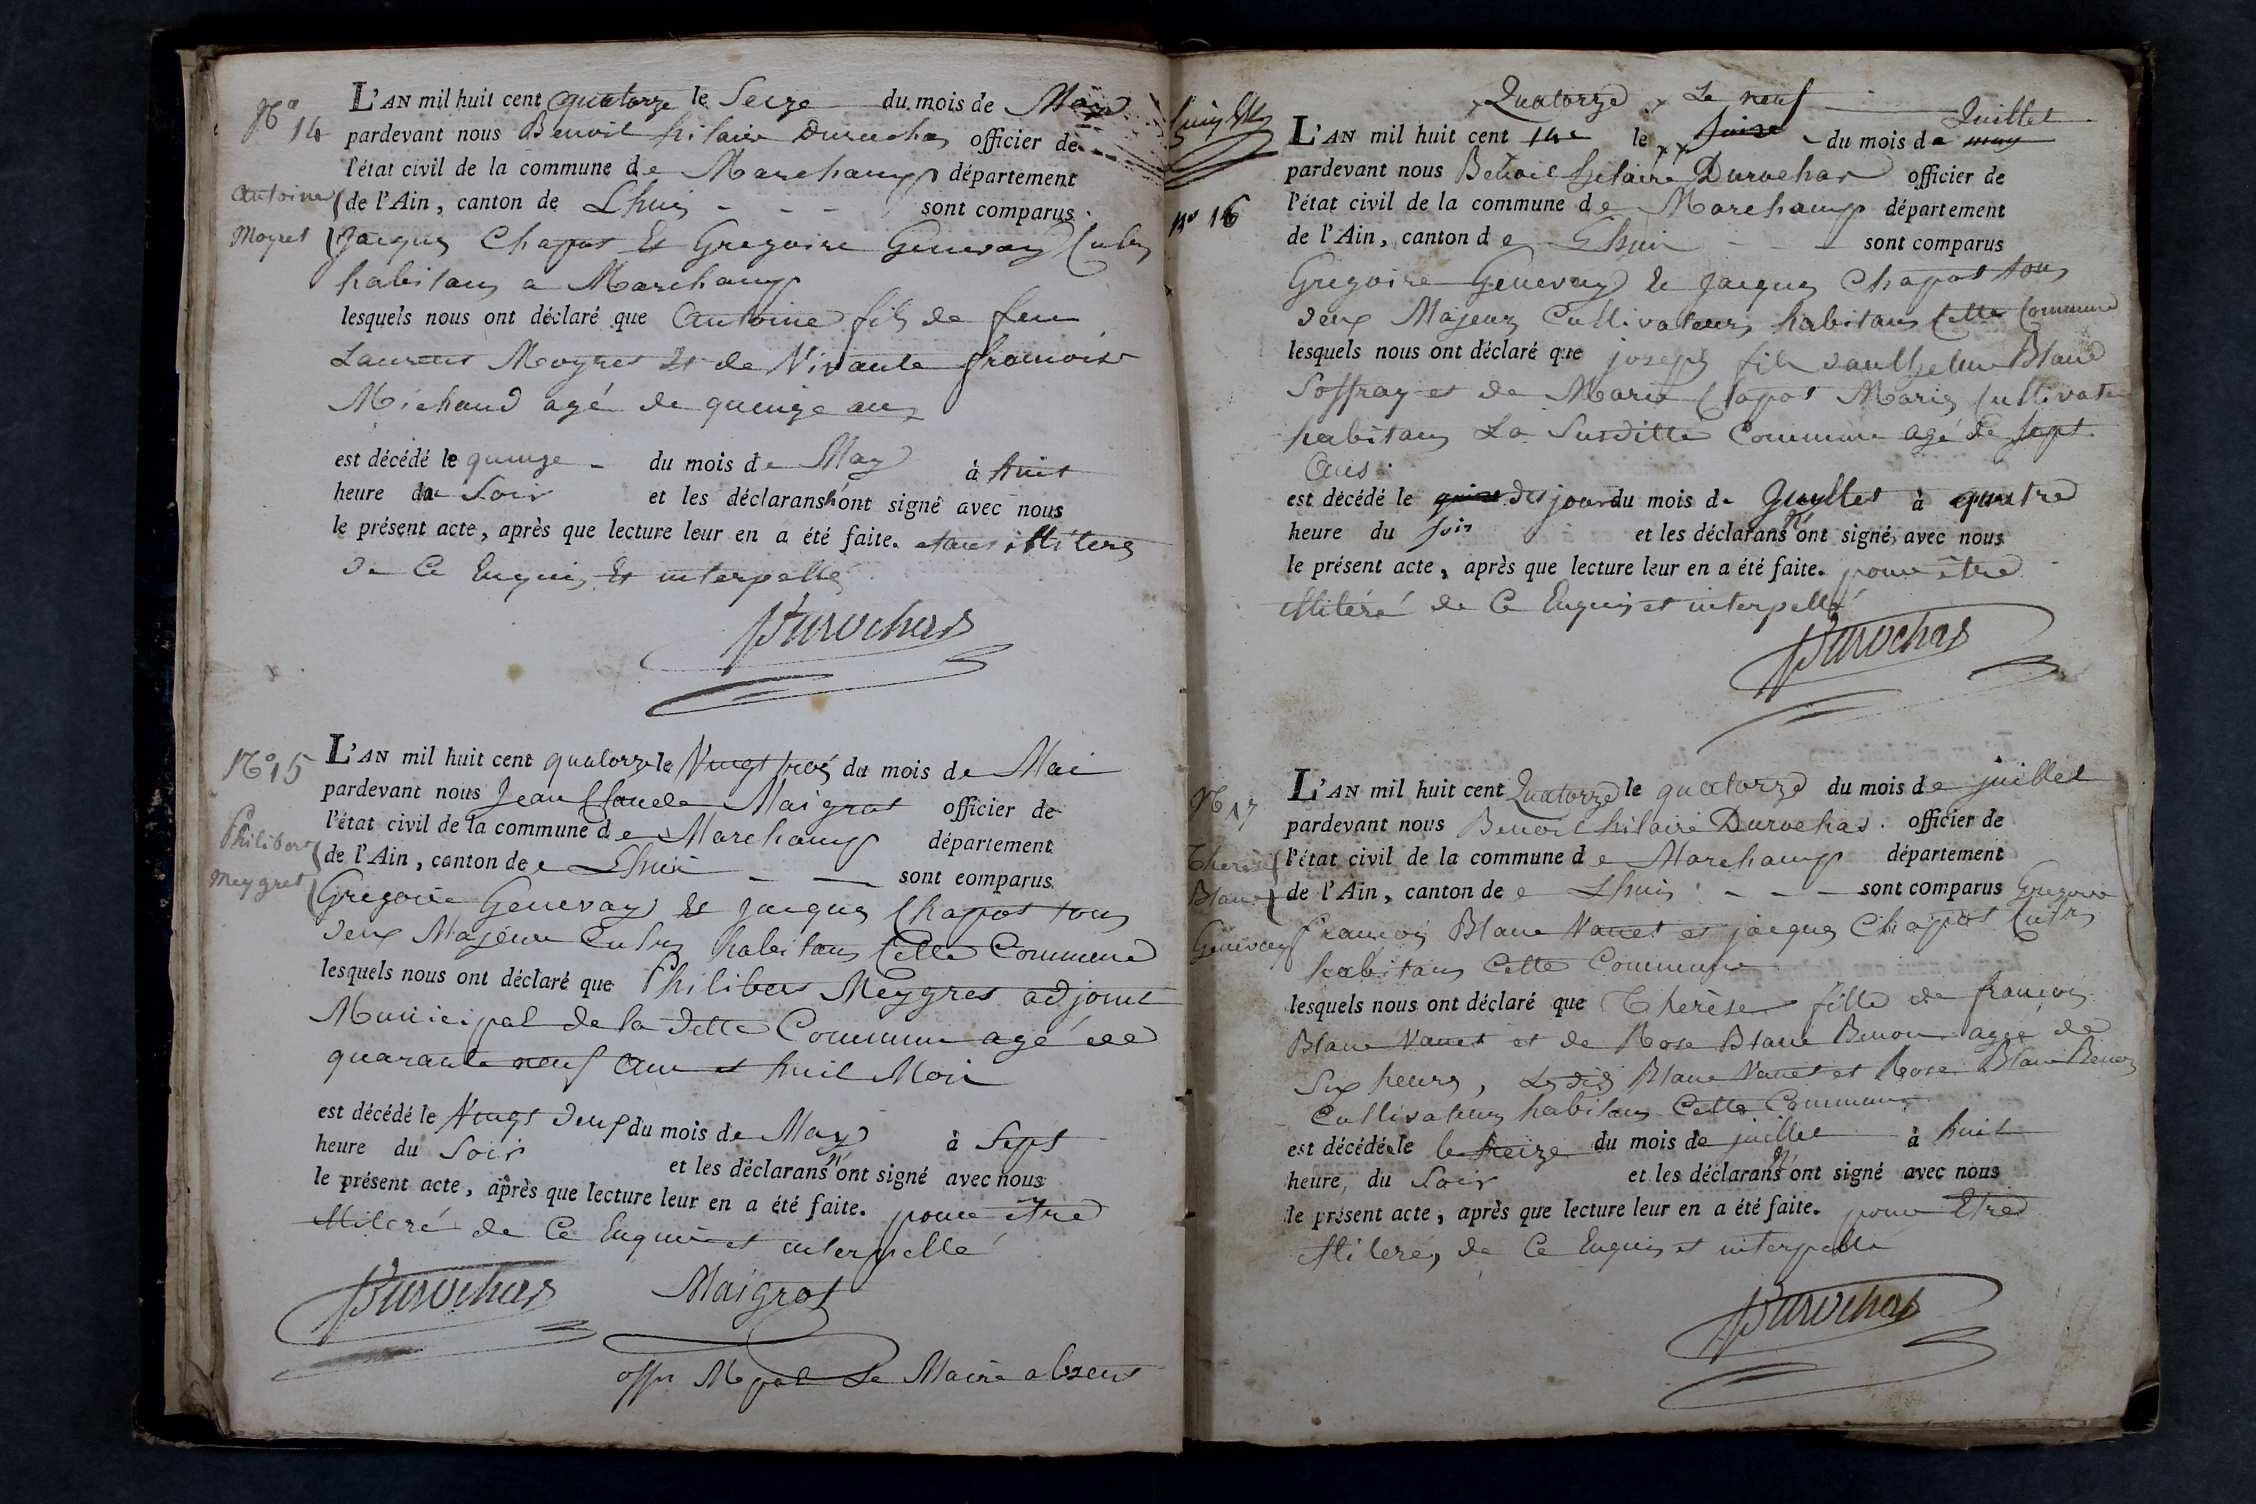 N° 14
Antoine
Moyret
L'AN mil huit cent quatorze le Seize du mois de May
pardevant nous Benoit hilaire Durochas officier de
l'état civil de la commune de Marchamp département
de l'Ain, canton de Lhuis - - - sont comparus
Jacques Chapot Et Gregoire Genevay Cultrs
habitans a Marchamp
lesquels nous ont déclaré que Antoine fils de feu
Laurent Moyret Et de Vivante francoise
Michaud agé de quinze ans
est décédé le quinze - du mois de May à huit
heure du Soir et les déclarans n'ont signé avec nous
le présent acte, après que lecture leur en a été faite. etans illiteres
de Ce Enquis Et interpellé
Durochas
N° 15
Philibert
Meygret
L'AN mil huit cent quatorze le Vingt trois du mois de Mai
pardevant nous Jean Claude Maigrot officier de
l'état civil de la commune de Marchamp département
de l'Ain, canton de Lhuis - - sont comparus
Gregoire Genevay Et jacques Chapot tous
deux Majeur Cultrs habitans Cette Commune
lesquels nous ont déclaré que Philibert Meygret adjoint
Municipal de la ditte Commune agé de
quarante neuf ans et huit Mois
est décédé le Vingt deux du mois de May à Sept
heure du Soir et les déclarans n'ont signé avec nous
le présent acte, après que lecture leur en a été faite. pour être
illiteré de Ce Enquis et interpellé
Durochas Maigrot
offr Mpal Le Maire absent
N° 16
Quatorze Le neuf Juillet
L'AN mil huit cent 14e le du mois de may
pardevant nous Benoit hilaire Durochas officier de
l'état civil de la commune de Marchamp département
de l'Ain, canton de Lhuis - - sont comparus
Gregoire Genevay Et Jacques Chapot tous
deux Majeurs Cultivateurs habitans Cette Commune
lesquels nous ont déclaré que joseph fils danthelme Blanc
Soffray et de Marie Chapot Mariés Cultivateurs
habitans La Susditte Commune agé de Sept
Ans.
est décédé le dit jour du mois de Juyllet à quatre
heure du Soir et les déclarans n'ont signé, avec nous
le présent acte, après que lecture leur en a été faite. pour être
illiteré de Ce Enquis et interpellé
Durochas
N° 17
Therese
Blanc
Genevay
L'AN mil huit cent Quatorze le quatorze du mois de juillet
pardevant nous Benoit hilaire Durochas. officier de
l'état civil de la commune de Marchamp département
de l'Ain, canton de Lhuis - - - sont comparus Gregoire
francois Blanc Vanet et jacques Chapot Cultrs
habitans Cette Commune
lesquels nous ont déclaré que Therèse fille de francois
Blanc Vanet et de Rose Blanc Benon agé de
Six heures, Lesdits Blanc Vanet et Rose Blanc Benon
Cultivateurs habitans Cette Commune
est décédée le le treize du mois de juillet à huit
heure, du Soir et les déclarans n'ont signé avec nous
le présent acte, après que lecture leur en a été faite. pour Etre
illiteré, de Ce Enquis et interpellé
Durochas